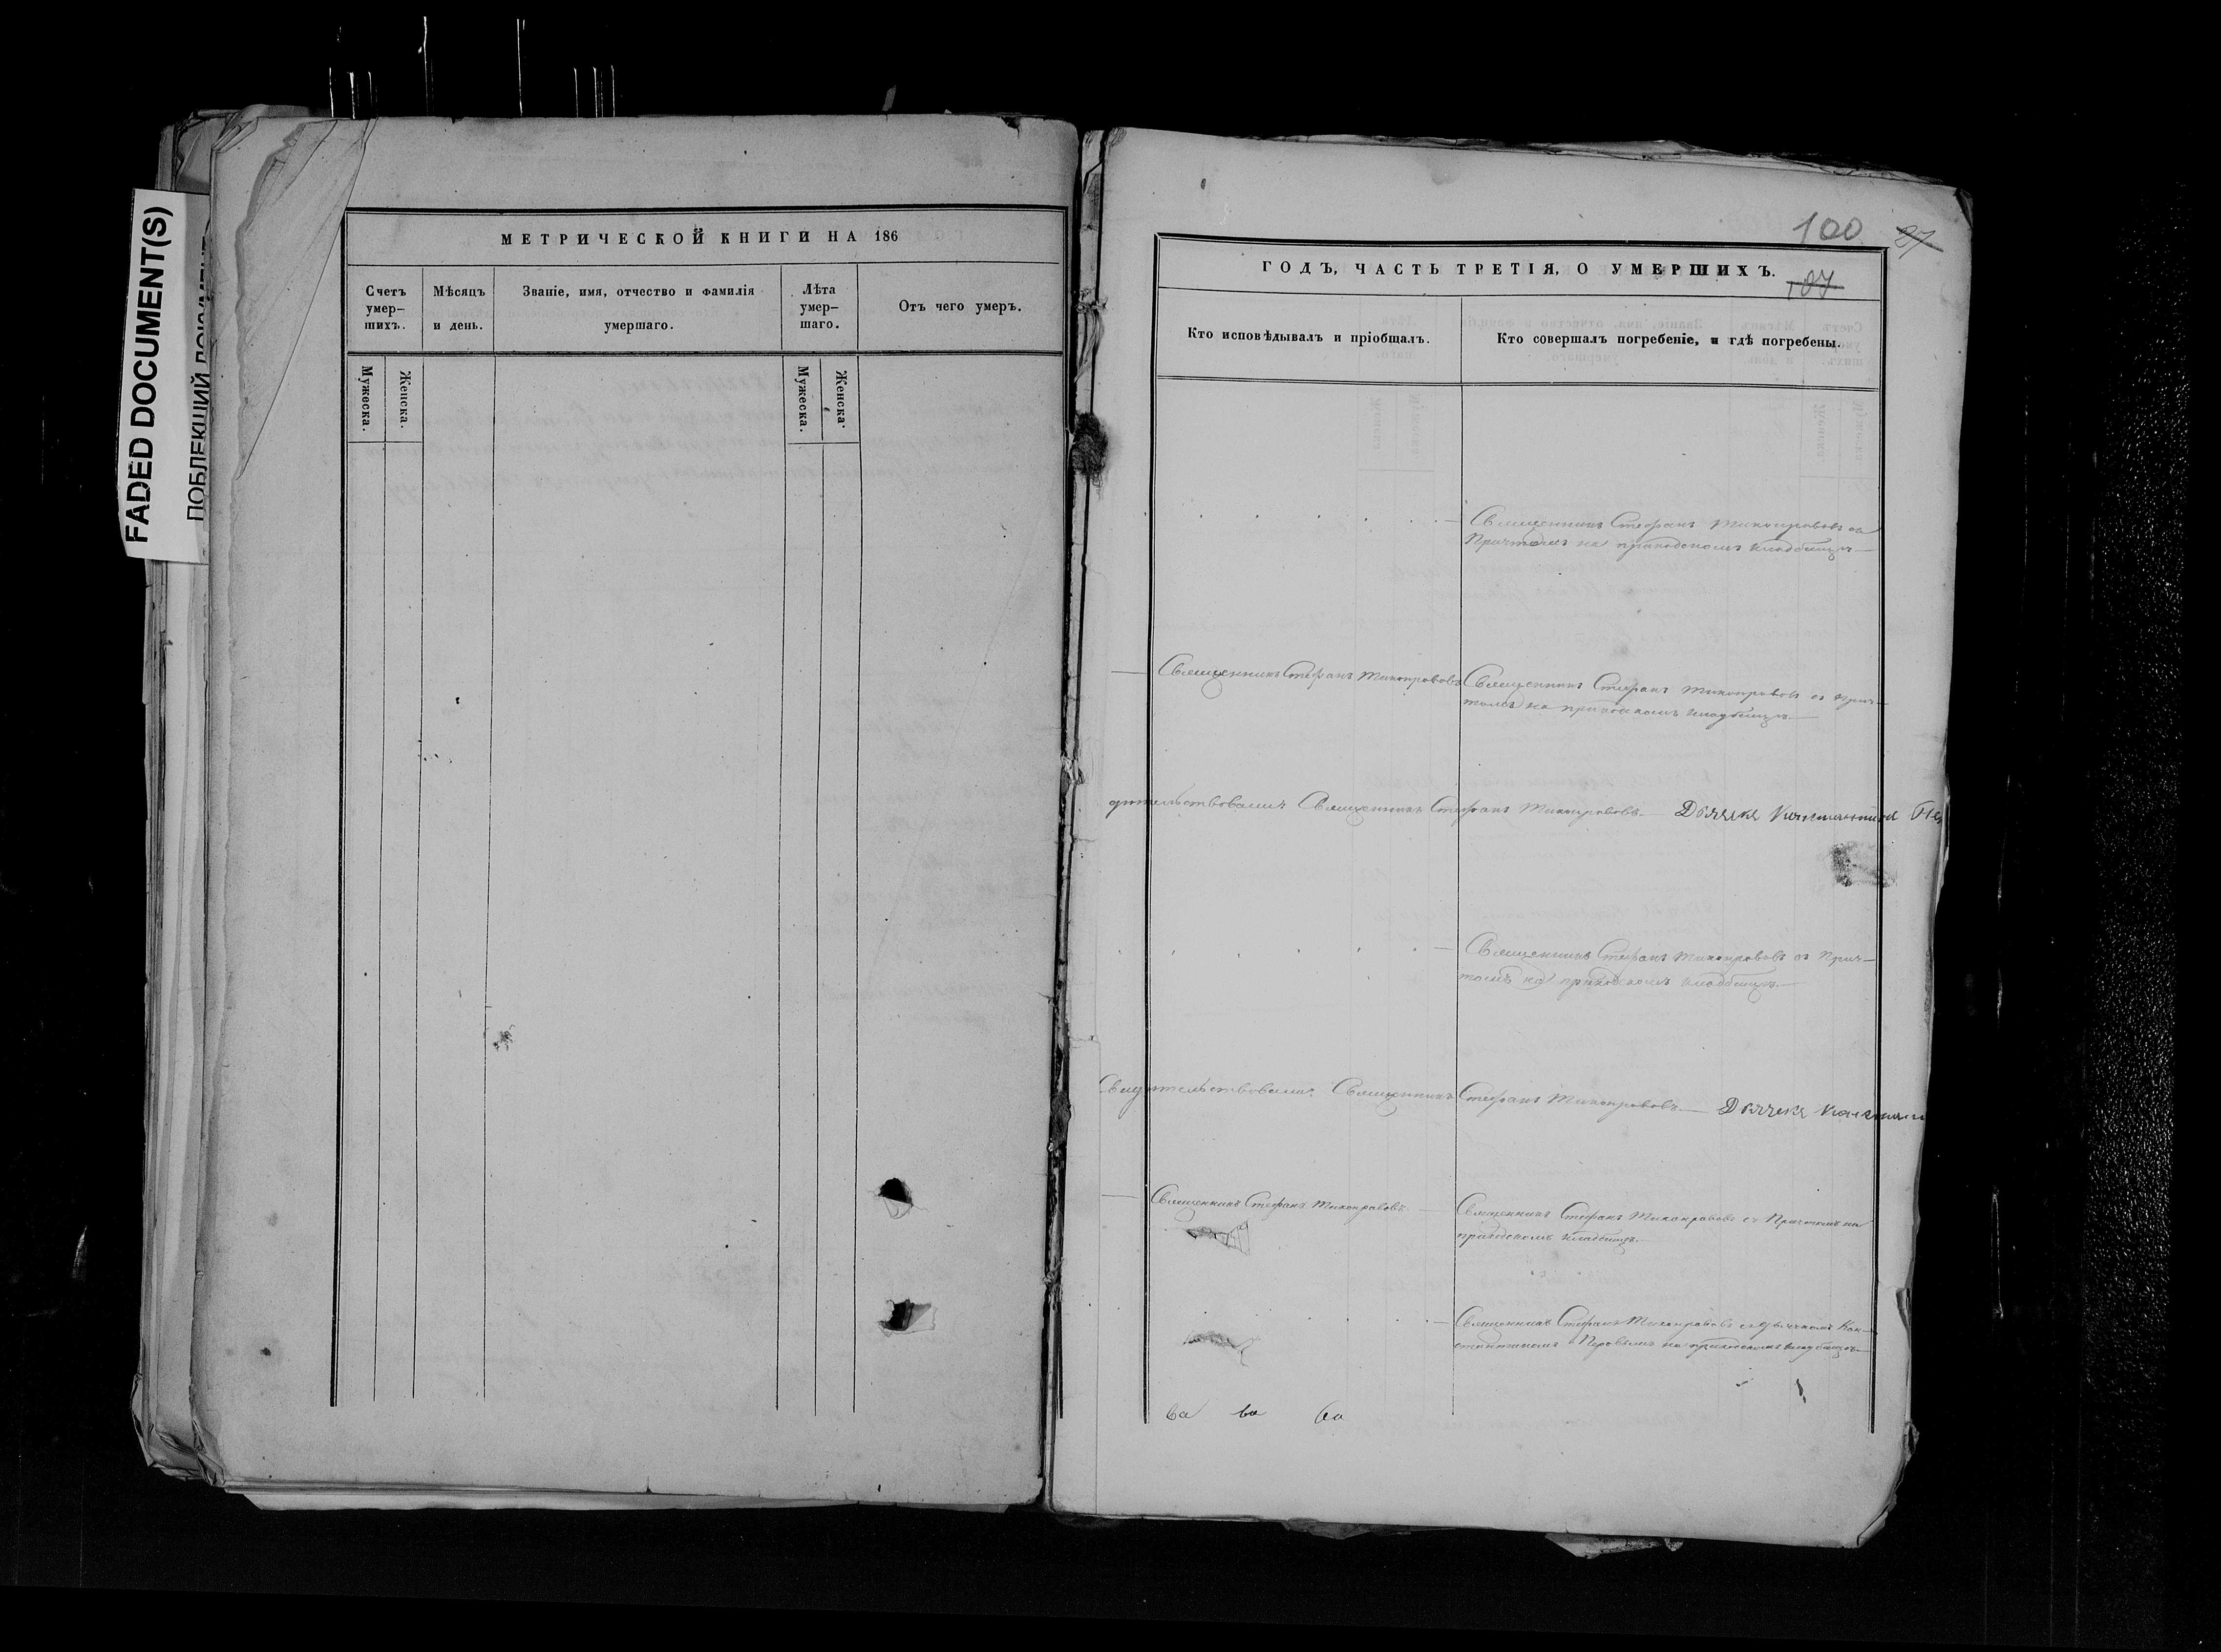 FADED DOCUMENT(S)
ПОБЛЕКШИЙ ДОКУМЕНТ
МЕТРИЧЕСКОЙ КНИГИ НА 186
Счетъ умер-шихъ.
Мѣсяцъ и день.
Званіе, имя, отчество и фамилія умершаго.
Лѣта умер-шаго.
Отъ чего умеръ.
Мужеска.
Женска.
Мужеска.
Женска.
100
27
107
ГОДЪ, ЧАСТЬ ТРЕТІЯ, О УМЕРШИХЪ.
Кто исповѣдывалъ и пріобщалъ.
Кто совершалъ погребеніе, и гдѣ погребены.
Священникъ Стефанъ Тихонравовъ съ
Причтомъ на приходскомъ кладбищѣ
Священникъ Стефанъ Тихонравовъ
Священникъ Стефанъ Тихонравовъ съ прич-
томъ на приходскомъ кладбищѣ
дѣтельствовали: Священникъ Стефанъ Тихонравовъ. Дьячекъ Константинъ
Священникъ Стефанъ Тихонравовъ съ Прич-
томъ на приходскомъ кладбищѣ.
Свидѣтельствовали: Священникъ Стефанъ Тихонравовъ. Дьячекъ
Священникъ Стефанъ Тихонравовъ.
Священникъ Стефанъ Тихонравовъ съ Причтомъ на
приходскомъ кладбищѣ.
Священникъ Стефанъ Тихонравовъ съ дьячкомъ Кон-
стантиномъ на приходскомъ кладбищѣ
ва ва ва